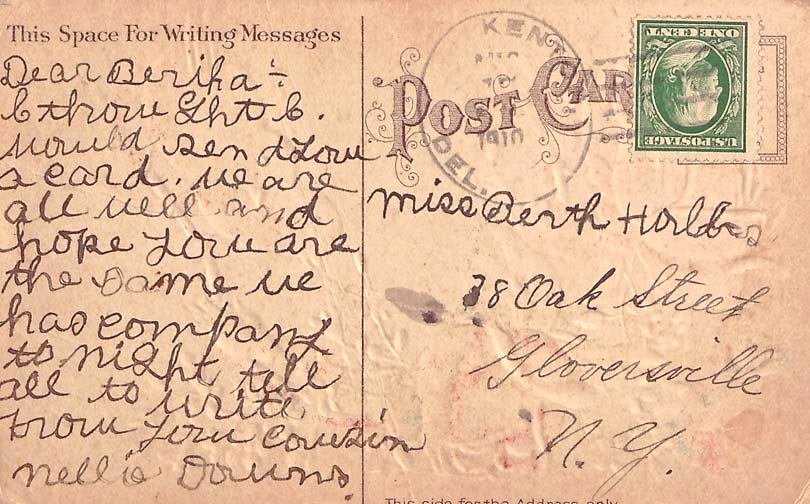 This Space For Writing Messages
Dear Bertha :-
I throu Ght I.
would send you
a card. we are
all well and
hope you are
the Same we
has company
to night tell
all to write
From your couzin
Nellie Downs.
POST CAR
KENT
10
1910
DEL.
U.S. POSTAGE
ONE CENT
Miss Berth Hollbs
38 Oak Street
Gloversville
N.Y.
This side for the Address only